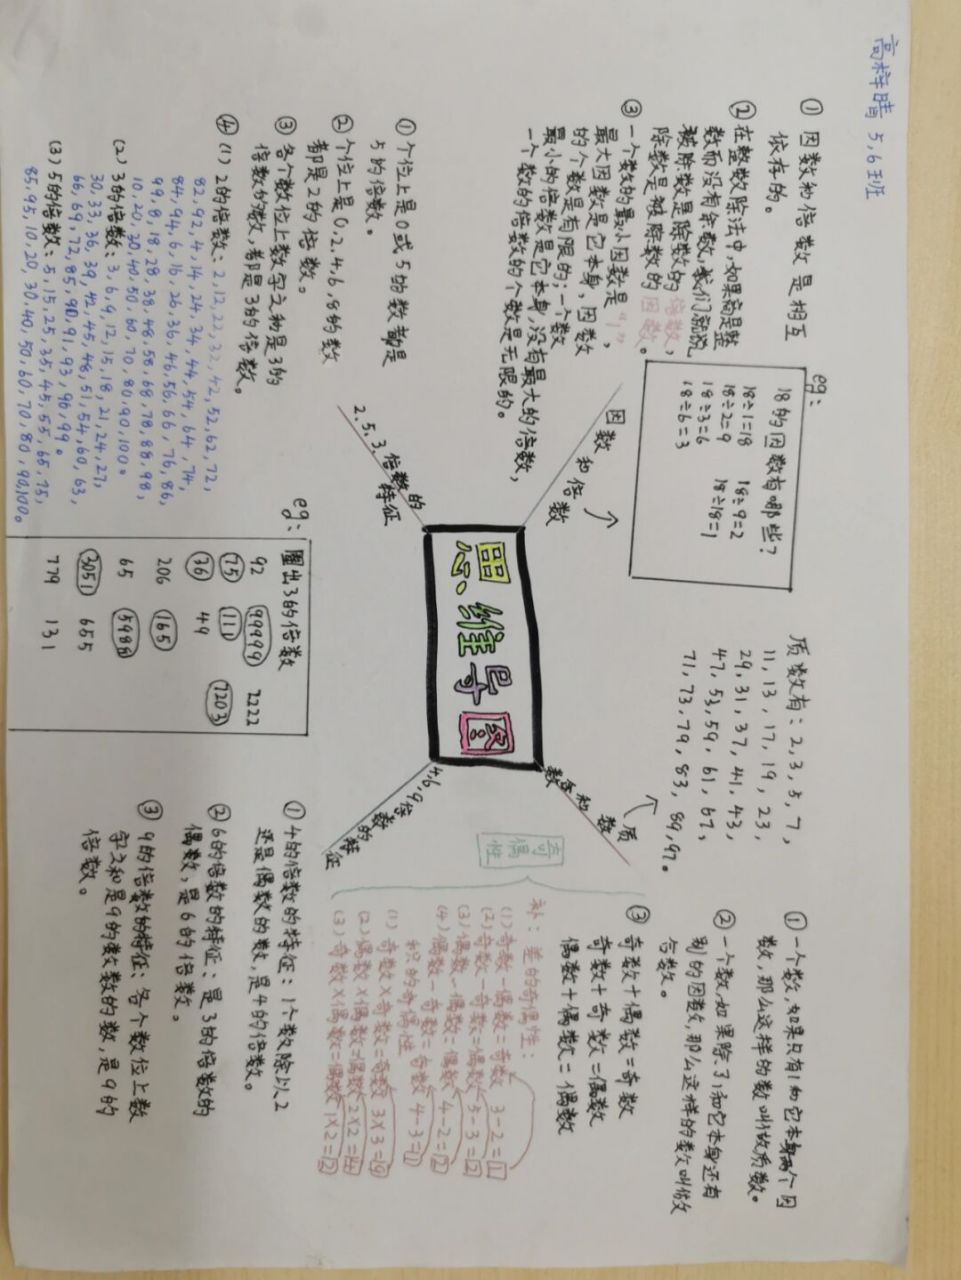 高梓晴 5,6班
① 因数和倍数是相互
依存的。
② 在整数除法中,如果商是整
数而没有余数,我们就说
被除数是除数的倍数,
除数是被除数的因数。
③ 一个数的最小因数是“1”,
最大因数是它本身、因数
的个数是有限的;一个数
最小的倍数是它本身,没有最大的倍数,
一个数的倍数的个数是无限的。
eg:
18的因数有哪些?
18÷1=18 18÷9=2
18÷2=9 18÷18=1
18÷3=6
18÷6=3
因数和倍数
质数有:2,3,5,7,
11,13,17,19,23,
29,31,37,41,43,
47,53,59,61,67,
71,73,79,83,89,97。
质数和合数
① 一个数,如果只有1和它本身两个因
数,那么这样的数叫做质数。
② 一个数,如果除了1和它本身还有
别的因数,那么这样的数叫做
合数。
③ 奇数+偶数=奇数
奇数+奇数=偶数
偶数+偶数=偶数
奇偶性
补:差的奇偶性:
(1)奇数-偶数=奇数 3-2=1
(2)奇数-奇数=偶数 5-3=2
(3)偶数-偶数=偶数 4-2=2
(4)偶数-奇数=奇数 4-3=1
积的奇偶性
(1)奇数×奇数=奇数 3×3=9
(2)偶数×偶数=偶数 2×2=4
(3)奇数×偶数=偶数 1×2=2
思维导图
2.5.3倍数的特征
① 个位上是0或5的数都是
5的倍数。
② 个位上是0,2,4,6,8的数
都是2的倍数。
③ 各个数位上数字之和是3的
倍数的数,都是3的倍数。
④ (1) 2的倍数:2,12,22,32,42,52,62,72,
82,92,4,14,24,34,44,54,64,74,
84,94,6,16,26,36,46,56,66,76,86,
8,18,28,38,48,58,68,78,88,98,
10,20,30,40,50,60,70,80,90,100。
(2) 3的倍数:3,6,9,12,15,18,21,24,27,
30,33,36,39,42,45,48,51,54,60,63,
66,69,72,85,90,91,93,96,99。
(3) 5的倍数:5,15,25,35,45,55,65,75,
85,95,10,20,30,40,50,60,70,80,90,100。
eg:
圈出3的倍数
92 99999 2222
75 111 7203
36 49
206 165
65 5988
3051 655
779 131
4,6,9倍数的特征
① 4的倍数的特征:1个数除以2
还是偶数的数,是4的倍数。
② 6的倍数的特征:是3的倍数的
偶数,是6的倍数。
③ 9的倍数的特征:各个数位上数
字之和是9的数的数,是9的
倍数。